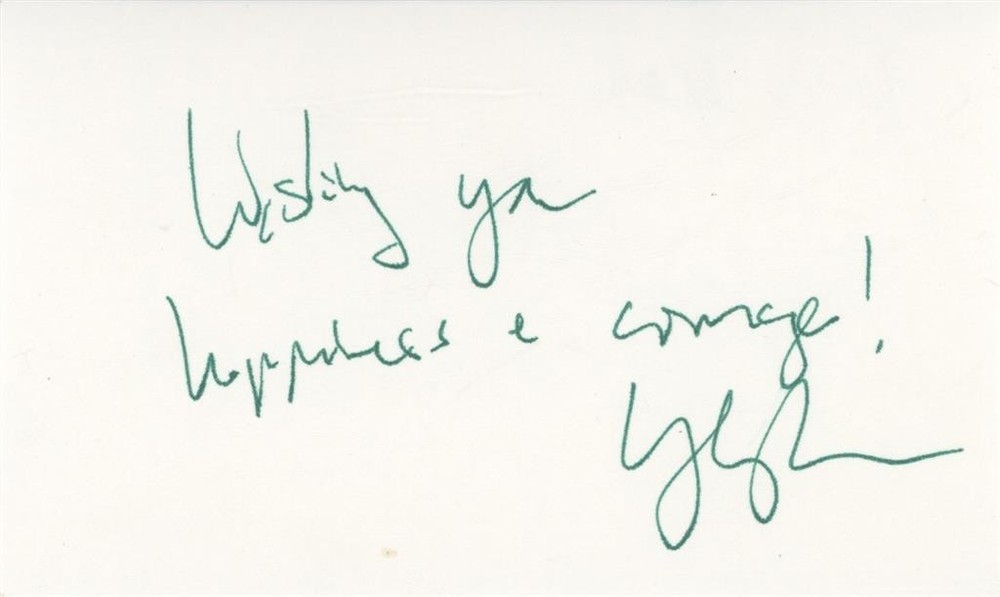 Wishing you
happiness & courage!